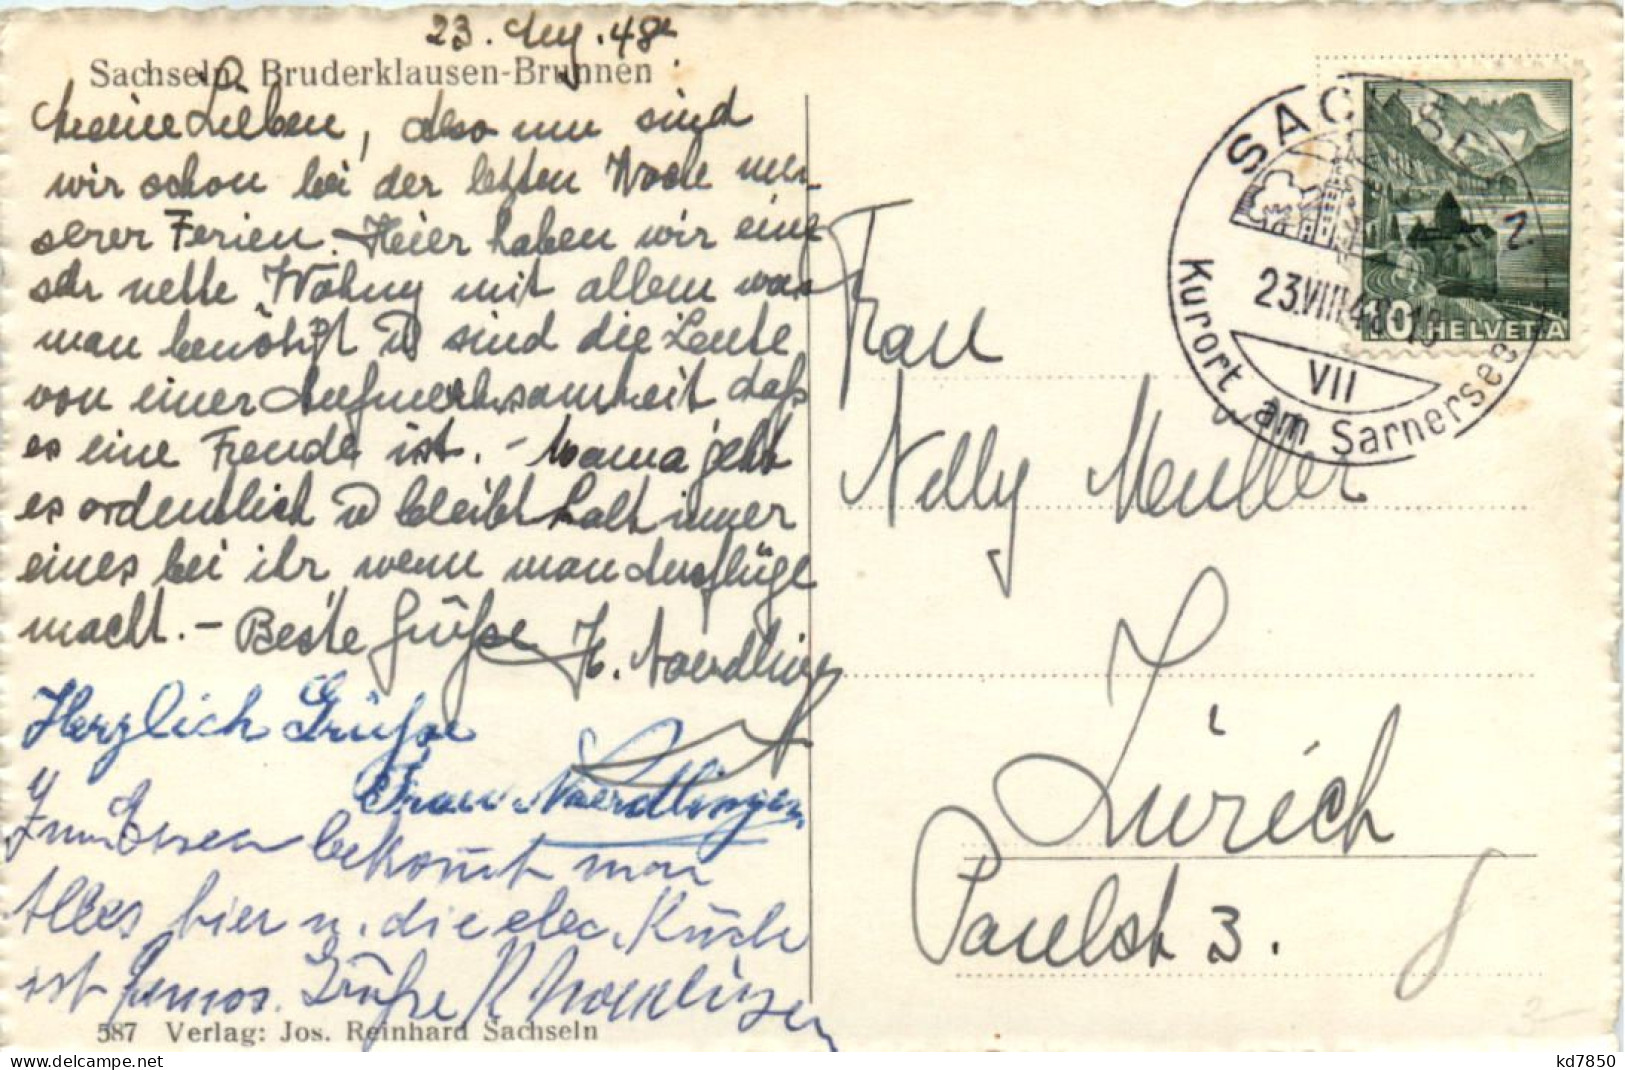 23. Aug. 48.
Sachseln, Bruderklausen-Brunnen
Meine Lieben, also nun sind
wir schon bei der letzten Woche un-
serer Ferien. Hier haben wir eine
sehr nette Wohng mit allem was
man benötigt u sind die Leute
von einer Aufmerksamkeit daß
es eine Freude ist. - Mama geht
es ordentlich u bleibt halt immer
eines bei ihr wenn man Ausflüge
macht. - Beste Grüße H. Noerdlinger
Herzlich Grüße
Frau Noerdlinger
Zum Essen bekommt man
Alles hier u. die elec. Küche
ist famos. Grüße R Noerdlinger
587 Verlag: Jos. Reinhard Sachseln
SACHSELN
23.VIII.48
VII
Kurort am Sarnersee
10 HELVETIA
Frau
Nelly Meuller
Zürich
Paulstr 3.
3-
delcampe.net
kd7850